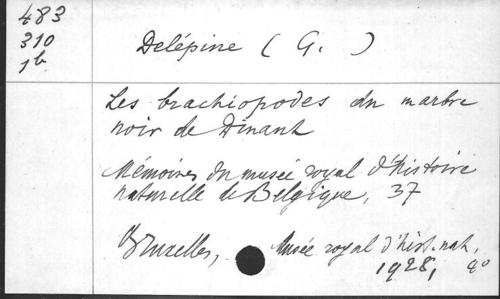 483
310
1b
Delépine (G. )
Les brachiopodes du marbre
noir de Dinant
Mémoires du musée royal d'histoire
naturelle de Belgique, 37
Bruxelles, Musée royal d'hist. nat,
1928, 4°